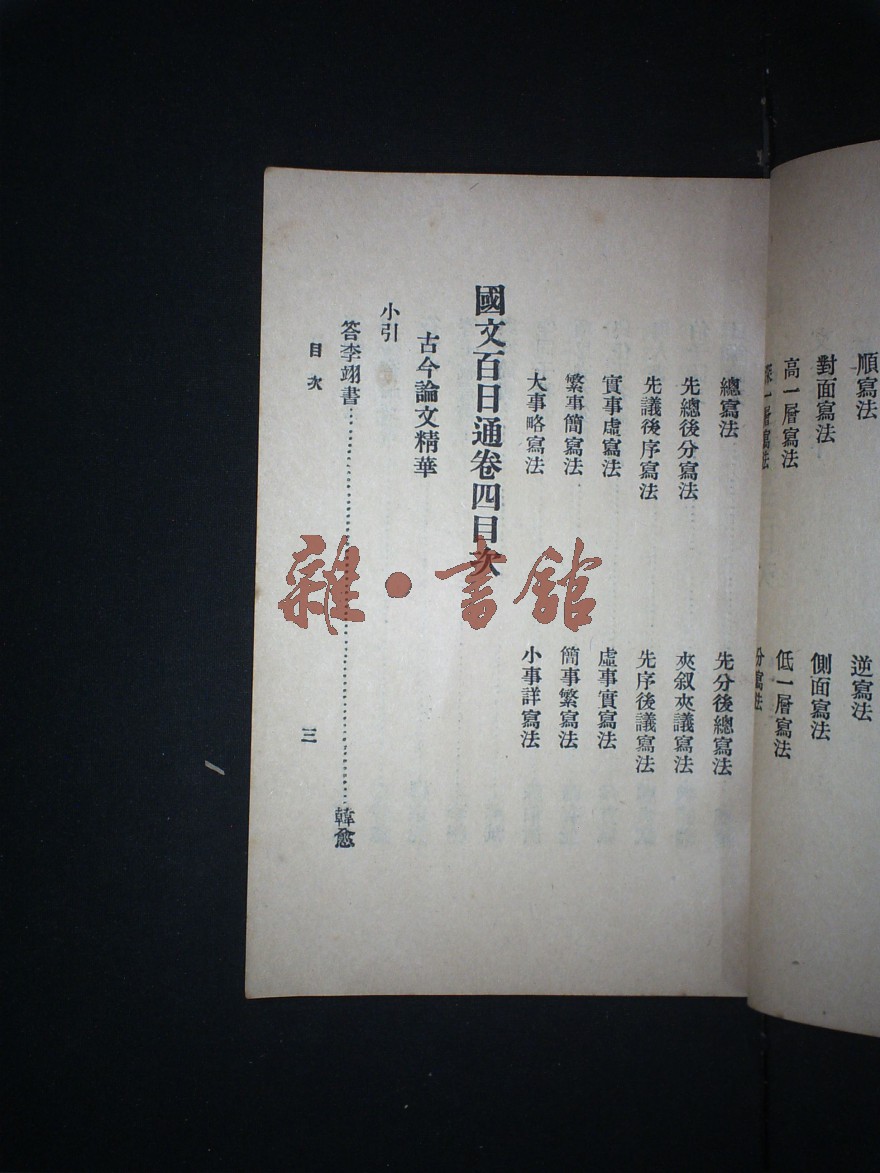 順寫法 逆寫法
對面寫法 側面寫法
高一層寫法 低一層寫法
深一層寫法 分寫法
總寫法 先分後總寫法
先總後分寫法 夾叙夾議寫法
先議後序寫法 先序後議寫法
實事虛寫法 虛事實寫法
繁事簡寫法 簡事繁寫法
大事略寫法 小事詳寫法
國文百日通卷四目次
古今論文精華
小引
答李翊書 韓愈
目次 三
雜·書館